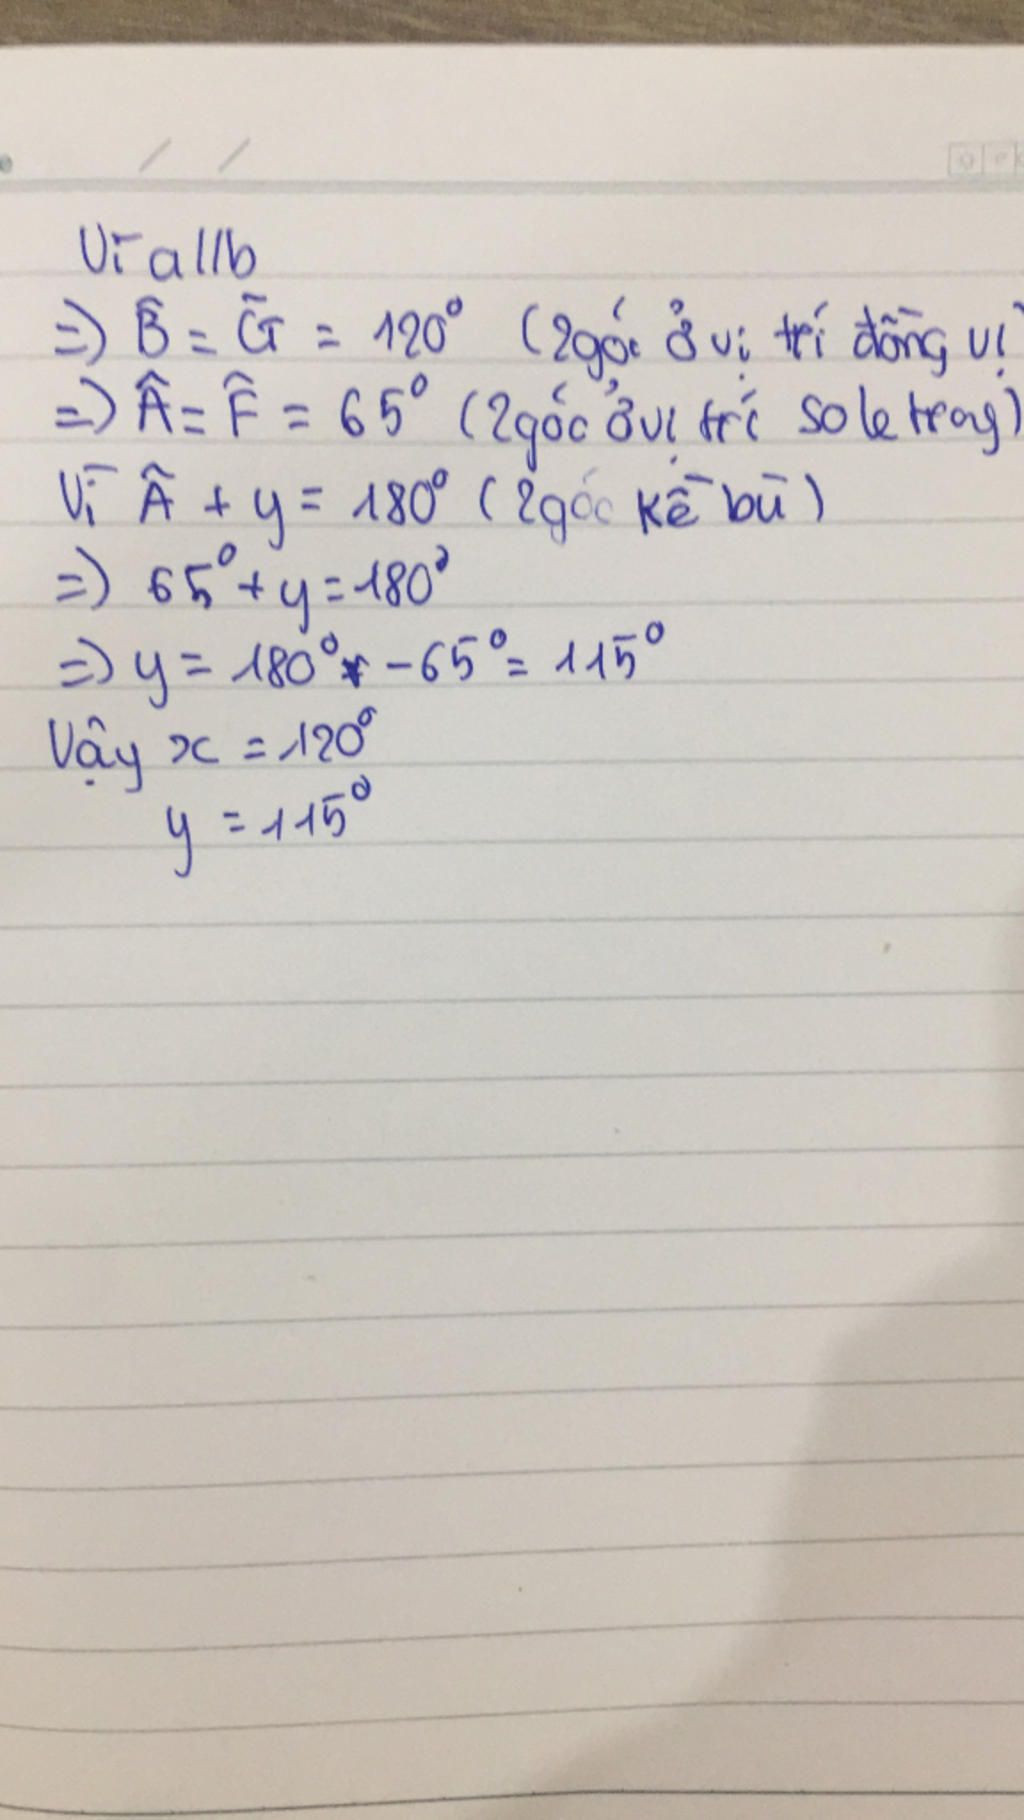 Vì a//b
=) B̂ = Ĝ = 120° (2góc ở vị trí đồng vị
=) Â = F̂ = 65° (2góc ở vị trí so le trong)
Vì Â + y = 180° (2góc kề bù)
=) 65° + y = 180°
=) y = 180° - 65° = 115°
Vậy x = 120°
y = 115°